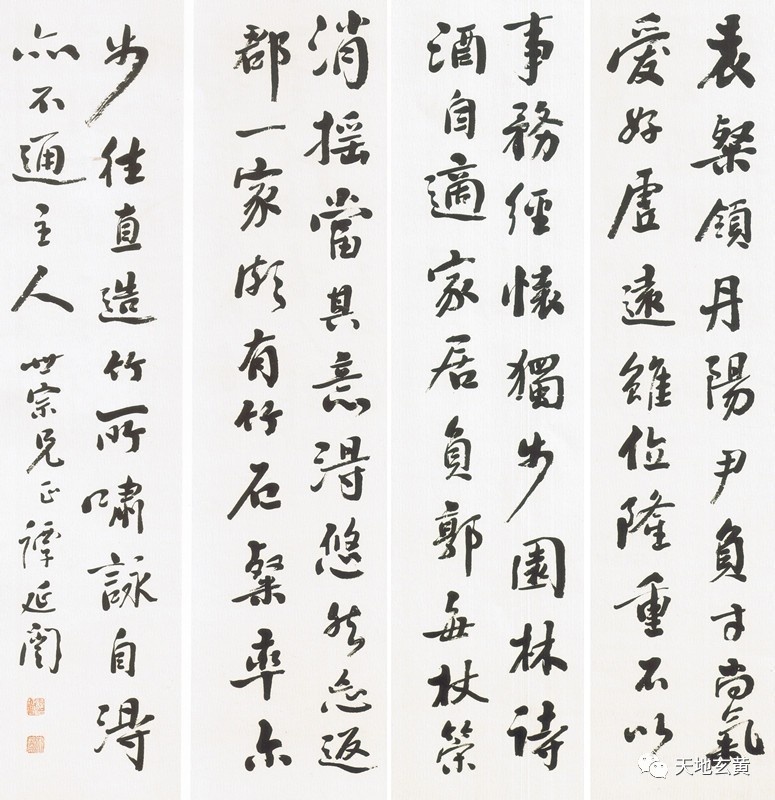 袁粲領丹陽尹負才尚氣
愛好虛遠雖位隆重不以
事務經懷獨步園林詩
酒自適家居負郭每杖策
消搖當其意得悠然忘返
郡一家頗有竹石粲率尔
步往直造竹所嘯詠自得
亦不通主人 世宗兄正 譚延闓
天地玄黄